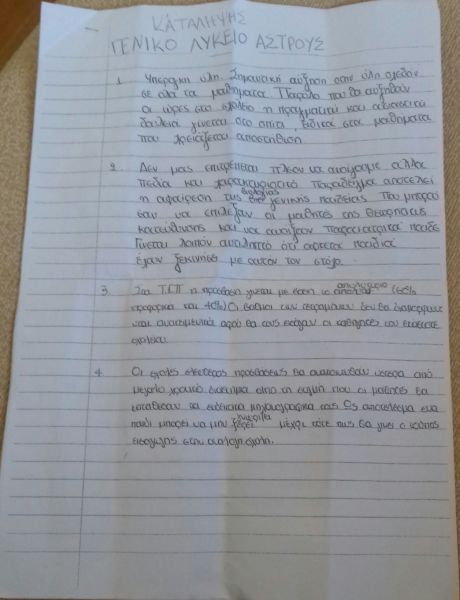 ΚΑΤΑΛΗΨΗΣ
ΓΕΝΙΚΟ ΛΥΚΕΙΟ ΑΣΤΡΟΥΣ
1. Υπέρογκη ύλη. Σημαντική αύξηση στην ύλη σχεδόν
σε όλα τα μαθήματα. Παρόλο που θα αυξηθούν
οι ώρες στο σχολείο η πραγματική και ουσιαστική
δουλειά γίνεται στο σπίτι, ειδικά στα μαθήματα
που χρειάζεται αποστήθιση
2. Δεν μας επιτρέπεται πλέον να ανοίγουμε άλλα
πεδία και χαρακτηριστικό παράδειγμα αποτελεί
η αφαίρεση της βιολογίας γενικής παιδείας. Που μπορού
σαν να επιλέξουν οι μαθητές της θεωρητικής
κατεύθυνσης και να ανοίξουν παραϊατρικά πεδία
Γίνεται λοιπόν αντιληπτό ότι αρκετά παιδιά
είχαν ξεκινήσει με αυτόν τον στόχο.
3. Στα Τ.Ε.Ι η πρόσβαση γίνεται με βάση το απολυτήριο (60%
προφορικά και 40%) Οι βαθμοί των τετραμήνων δεν θα διαμορφώνο
νται αντικειμενικά αφού θα τους βάζουν οι καθηγητές του εκάστοτε
σχολείου
4. Οι σχολές ελεύθερης πρόσβασης θα ανακοινωθούν ύστερα από
μεγάλο χρονικό διάστημα από τη στιγμή που οι μαθητές θα
καταθέσουν τα ειδικότερα μηχανογραφικά τους Ως αποτέλεσμα ένα
παιδί μπορεί να μην ξέρει μέχρι τότε πως θα γίνει ο τρόπος
εισαγωγής στην ανάλογη σχολή.